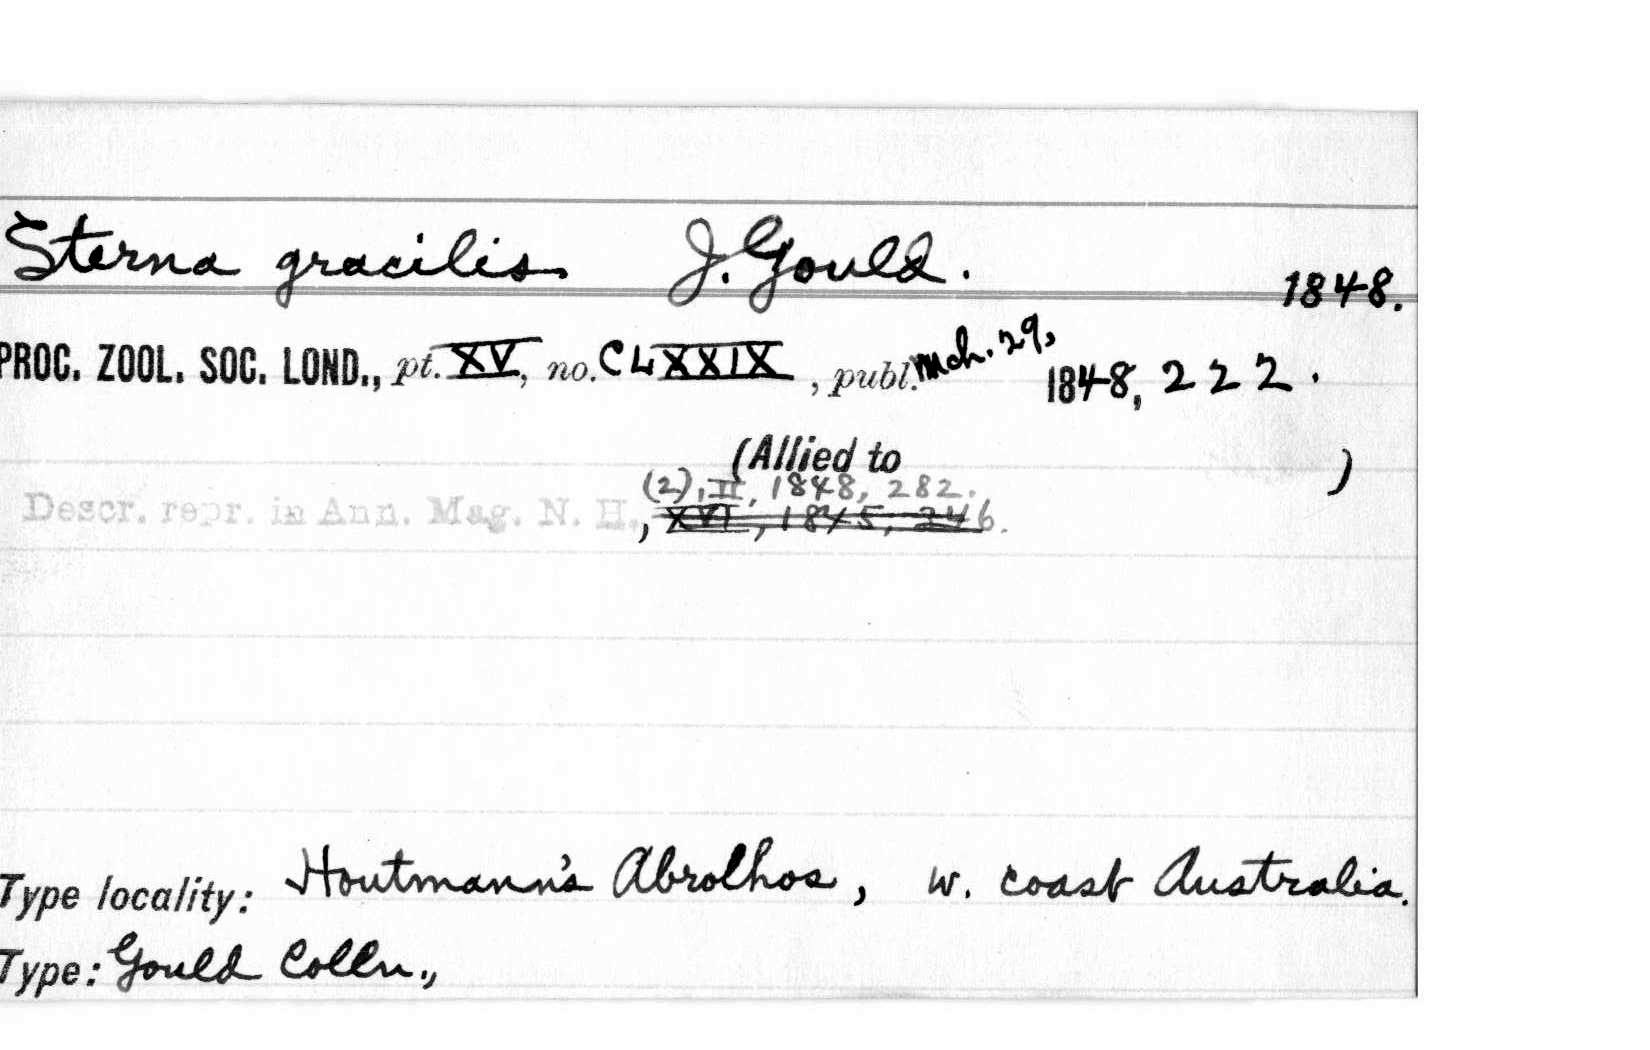 Sterna gracilis J. Gould.
1848.
PROC. ZOOL. SOC. LOND., pt. XV, no. CLXXIX, publ. Mch. 29, 1848, 222.
(Allied to )
(2), II, 1848, 282.
Descr. repr. in Ann. Mag. N. H., XVI, 1845, 246.
Type locality: Houtmann's Abrolhos, w. coast Australia.
Type: Gould Colln.,